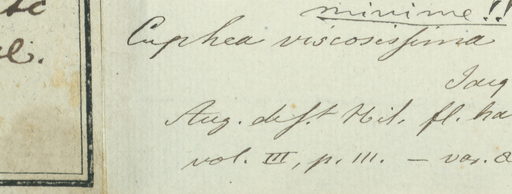 minime!!
Cuphea viscosissima
Jacq
Aug. de St. Hil. fl. bra
vol. III, p. 111. — var. α